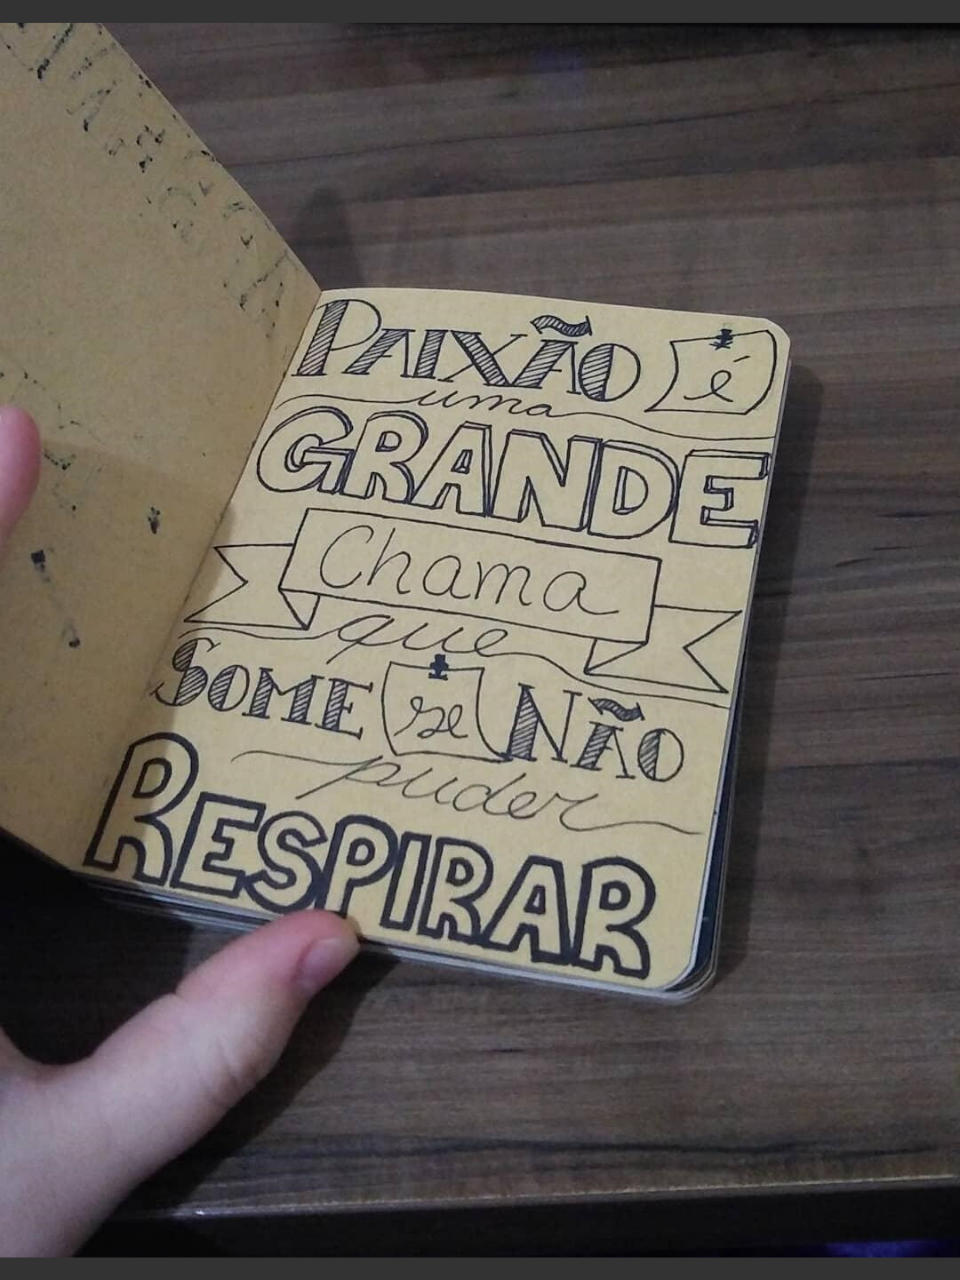 PAIXÃO é
uma
GRANDE
Chama
que
SOME se NÃO
puder
RESPIRAR